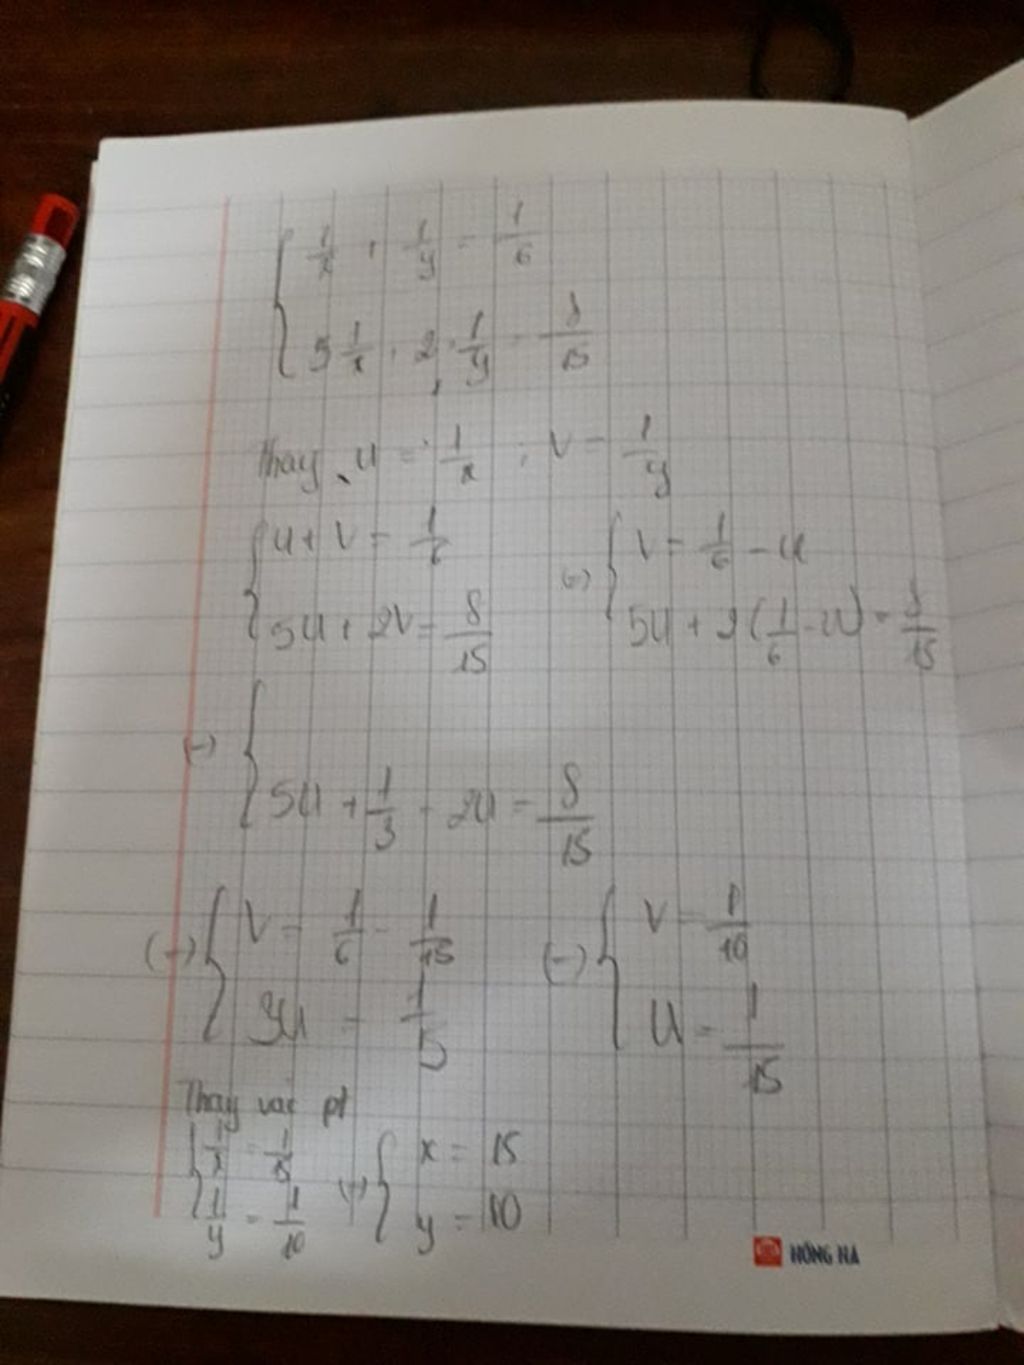 { 1/x + 1/y = 1/6
5 1/x + 2 . 1/y = 8/15
Thay u = 1/x ; v = 1/y
{ u + v = 1/6
5u + 2v = 8/15
(=) { v = 1/6 - u
5u + 2(1/6 - u) = 8/15
(=) {
5u + 1/3 - 2u = 8/15
(=) { v = 1/6 - 1/15
3u = 1/5
(=) { v = 1/10
u = 1/15
Thay vào pt
{ 1/x = 1/15
1/y = 1/10
(=) { x = 15
y = 10
HỒNG HÀ